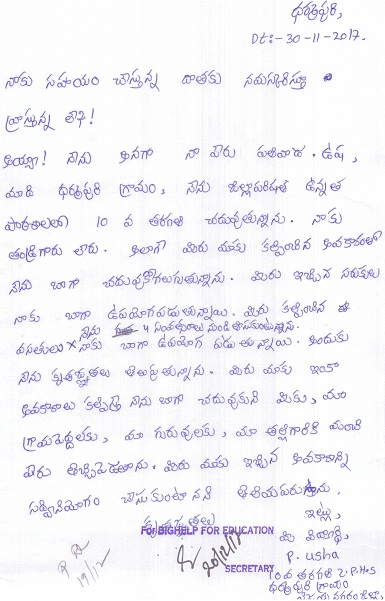 ధర్మపురి,
Dt:- 30-11-2017.
నాకు సహాయం చేస్తున్న దాతకు నమస్కరిస్తూ
వ్రాస్తున్న లేఖ!
అయ్యా! నేను అనగా నా పేరు పతివాడ. ఉష,
మాది ధర్మపురి గ్రామం, నేను జిల్లాపరిషత్ ఉన్నత
పాఠశాలలో 10 వ తరగతి చదువుతున్నాను. నాకు
తండ్రిగారు లేరు. అలాగే మీరు మాకు కల్పించిన అవకాశంతో
నేను బాగా చదువుకోగలుగుతున్నాను. మీరు ఇచ్చిన సరుకులు
నాకు బాగా ఉపయోగపడుతున్నాయి. మీరు కల్పించిన ఈ
నేను 4 సంవత్సరాలు నుండి తీసుకుంటున్నాను.
వసతులు × నాకు బాగా ఉపయోగ పడుతున్నాయి. అందుకు
నేను కృతజ్ఞతలు తెలుపుతున్నాను. మీరు మాకు ఇంకా
అవకాశాలు కల్పిస్తే నేను బాగా చదువుకుని మీకు, మా
గ్రామపెద్దలకు, మా గురువులకు, మా తల్లిగారికి మంచి
పేరు తెచ్చిపెడతాను. మీరు మాకు ఇచ్చిన అవకాశాన్ని
సద్వినియోగం చేసుకుంటానని తెలియపరుస్తాను.
కృతజ్ఞతలు ఇట్లు,
For BIGHELP FOR EDUCATION
మీ విద్యార్థి,
P. usha
20/12/17
SECRETARY
10వ తరగతి Z.P.H.S
ధర్మపురి గ్రామం